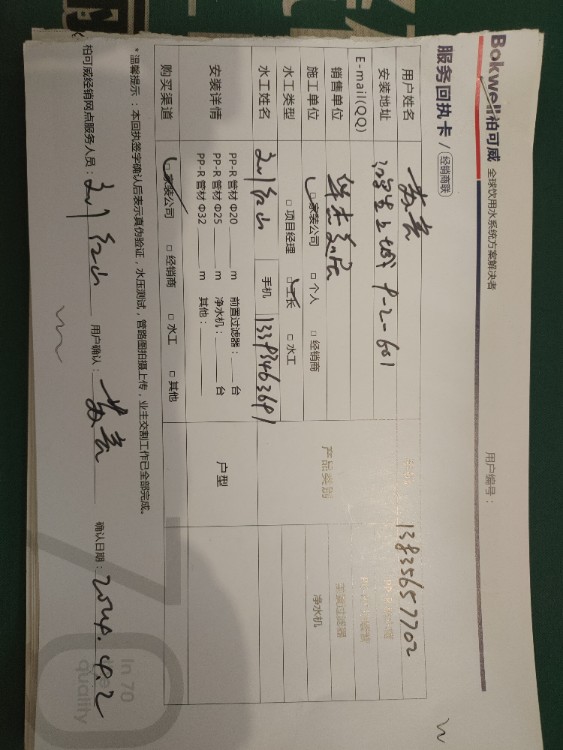 Bokwell柏可威 全球饮用水系统方案解决者
服务回执卡 / 经销商联
用户编号：
用户姓名
安装地址 上城 9-2-601
13835657702
E-mail(QQ)
销售单位 华杰美居
产品类别
主装过滤器
净水机
施工单位 □ 家装公司 □ 个人 □ 经销商
水工类型 □ 项目经理 □ 工长 □ 水工
水工姓名 刘红山 手机 13393463691
安装详情
PP-R 管材 Φ20 m 前置过滤器： 台
PP-R 管材 Φ25 m 净水机： 台
PP-R 管材 Φ32 m 其他：
户型
购买渠道 □ 家装公司 □ 经销商 □ 水工 □ 其他
*温馨提示：本回执签字确认后表示真伪验证，水压测试，管路图拍摄上传，业主交割工作已全部完成。
柏可威经销网点服务人员：刘红山 用户确认： 确认日期：2024.4.2
70
In 70
quality